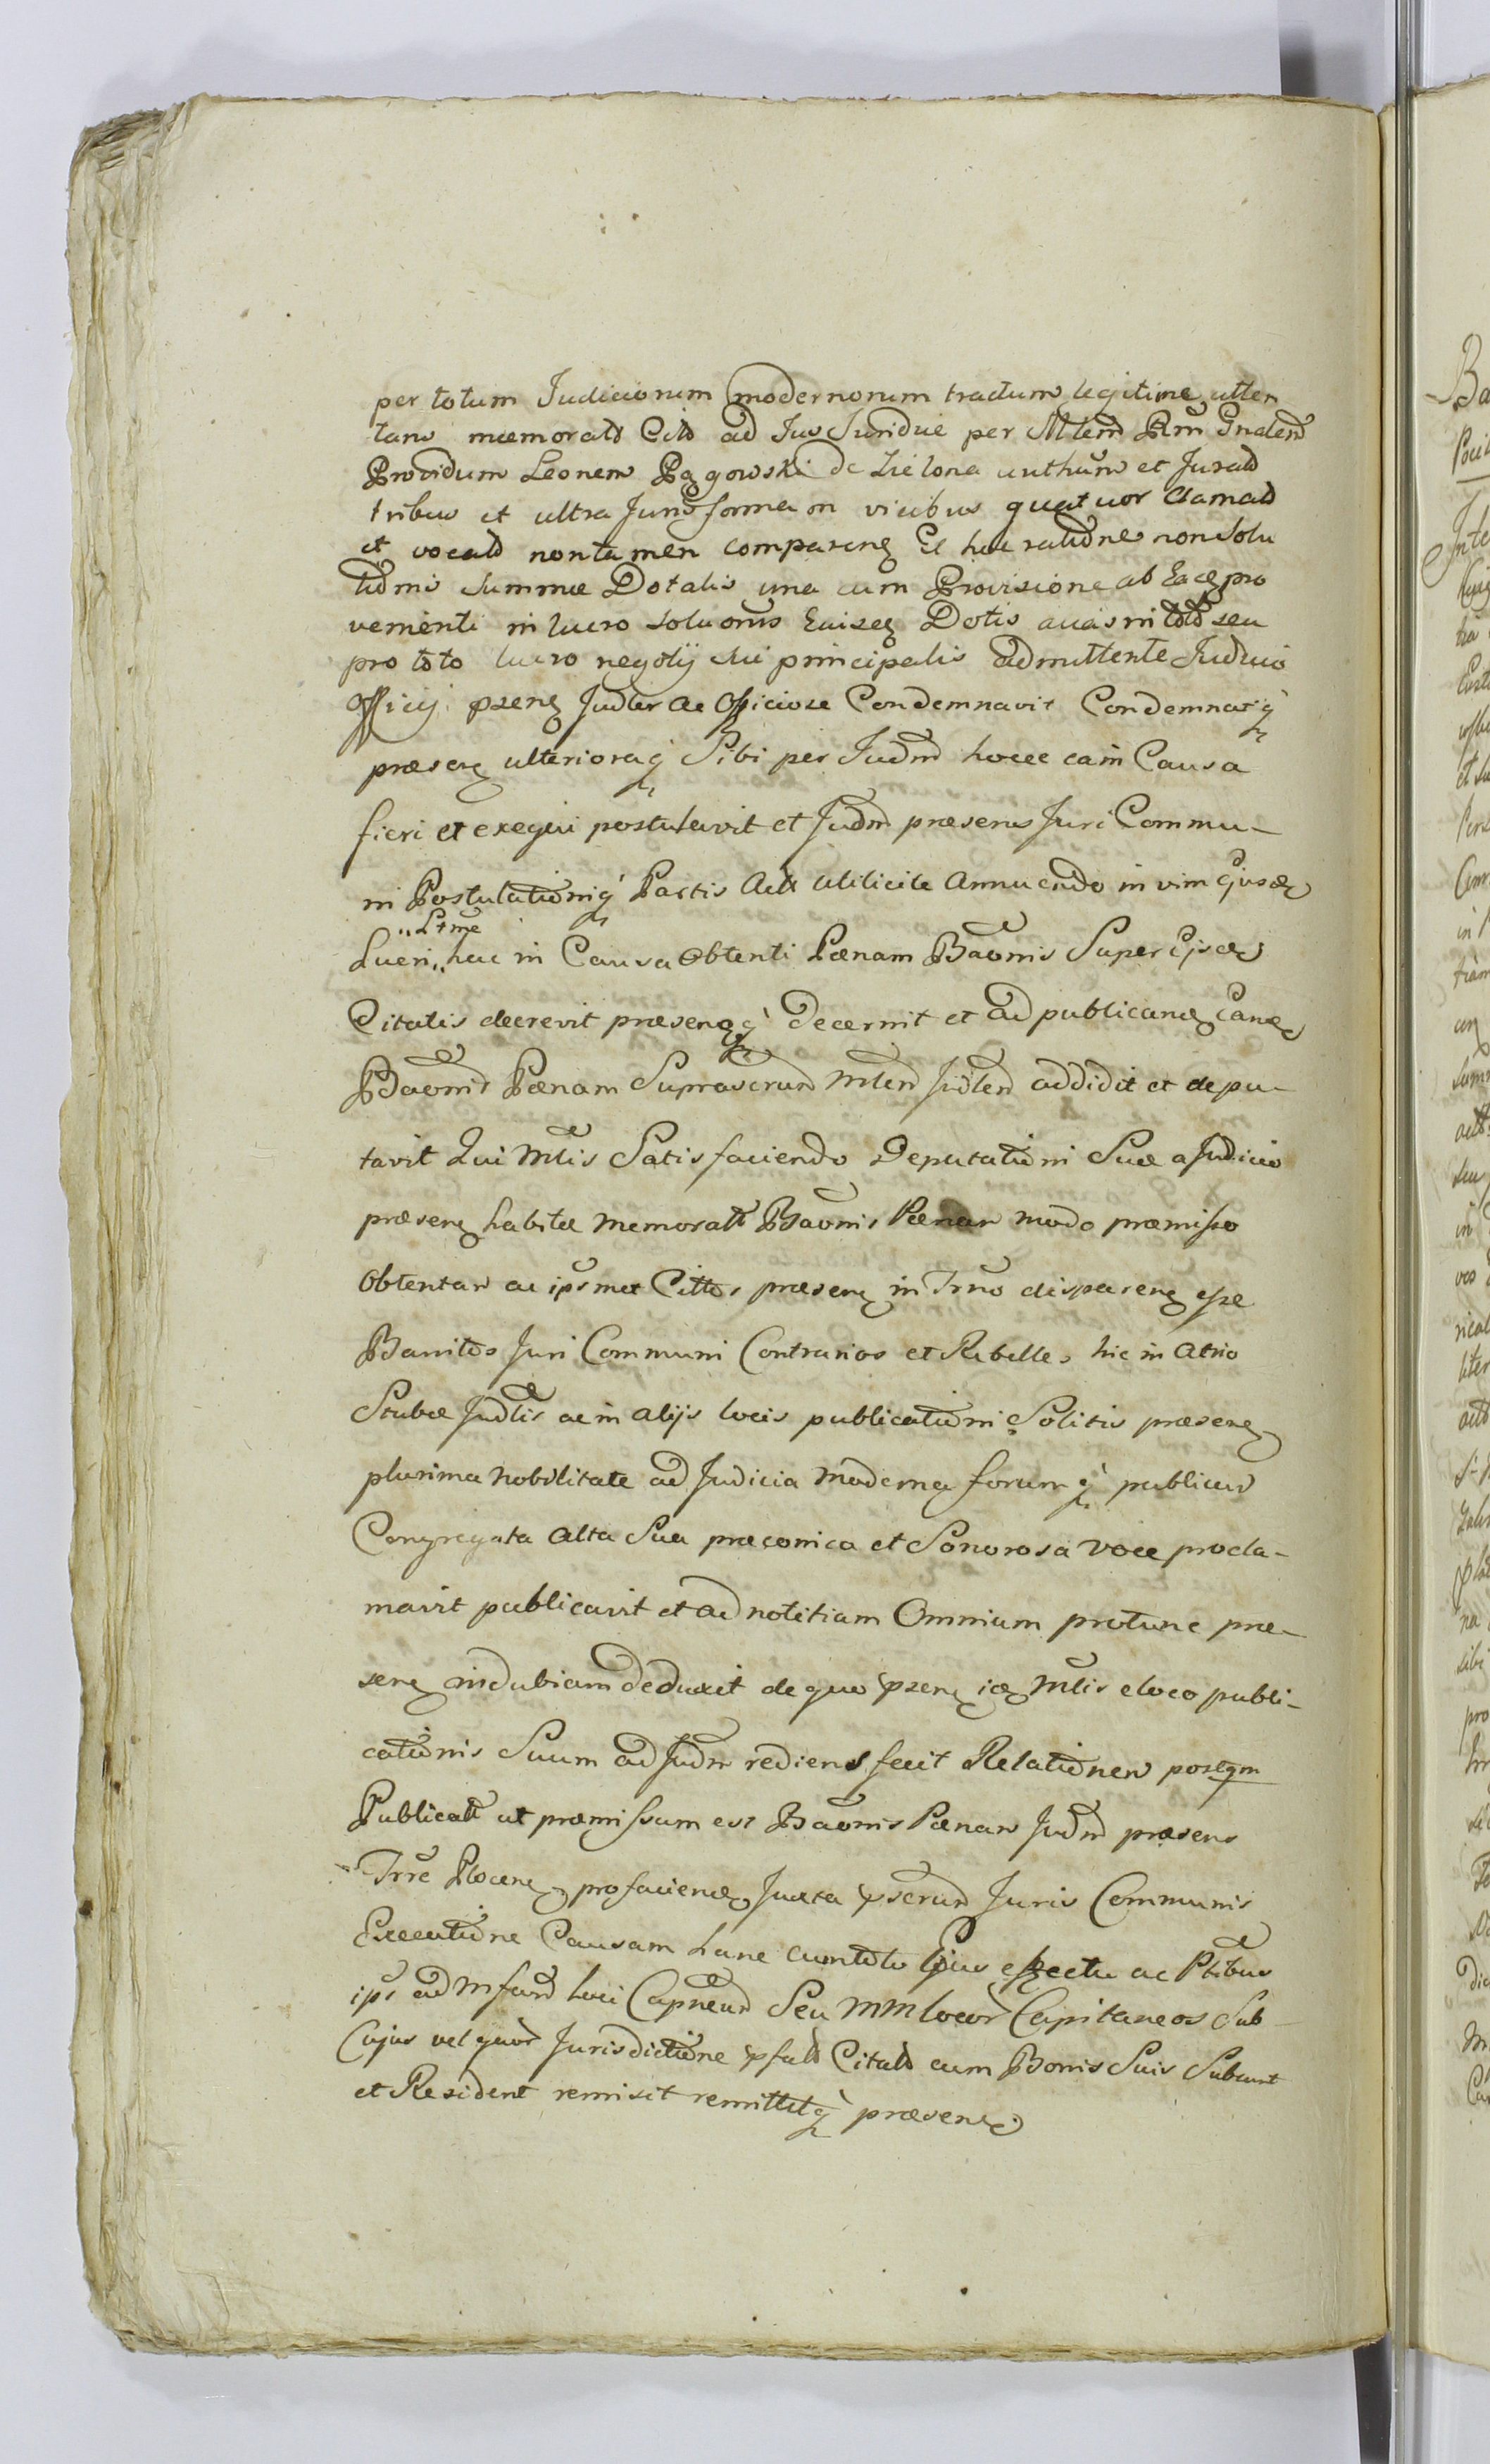 per totum Judiciorum modernorum tractum legitime atten
tans memoratd Citd ad Jus Juridice per Mlem Rm Gnalem
Providum Leonem Pągowski de Zielona authum et Juratd
tribus et ultra Juris formam vicibus quatuor clamatd
et vocatd non tamen comparenę Et hac ratione non solu
tionis Summæ Dotalis una cum Provisione ab Eaꝗ pro
venienti in lucro solutionis Dotis in toto seu
pro toto lucro negotij sui principalis admittente Judicio
Officij pseno Judler ac Officiose Condemnavit Condemnatq
præsenę ulterioraq Sibi per Judm hocce ea in Causa
fieri et exequi postulavit et Judm præsens Juri Commu-
ni Postulationiq Partis Actt utilicite Annuendo in vim Ejusdę
"Ltme
Lucri,, hac in Causa Obtenti Pœnam Baonis Super Ejsdę
Citatis decrevit præsenęq decernit et ad publicandę Eandę
Baonis Pœnam Suprascrum Mlem Judlem addidit et depu-
tavit Qui Mlis Satisfaciendo Deputationi Suæ a Judicio
præsenę habitæ memoratt Baonis Pœnam modo præmisso
Obtentam ac ipsmet Cittos præsenę in Trno disparenę esse
Banitos Juri Communi Contrarios et Rebelles hic in Atrio
Stubæ Judlis ac in alijs locis publicationi Solitis præsenę
plurima Nobilitate ad Judicia Moderna forumq publicum
Congregata Alta Sua præconica et Sonorosa Voce procla-
mavit publicavit et ad notitiam Omnium protunc præ-
senę indubiam deduxit de quo psenę idę Mlis e loco publi-
cationis Suum ad Judm rediens fecit Relationem postqm
Publicatt ut præmissum est Baonis Pœnam Judm præsens
Trre Plocenę pro faciendę Juxta pscrum Juris Communis
Executione Causam hanc cum toto Ejus effectu ac Ptibus
ips ad Mfcum loci Capneum Seu MM locor Capitaneos Sub
Cujus vel quor Jurisdictione pfatd Citatd cum Bonis Suis Subsunt
et Resident remisit remittitq præsenę